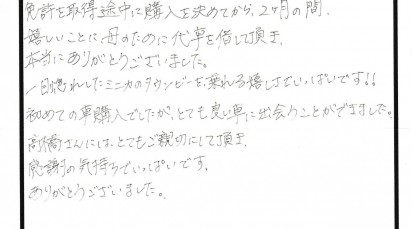 免許を取得途中に購入を決めてから、2ヶ月の間、
嬉しいことに、母のために代車を借して頂き、
本当にありがとうございました。
一目惚れしたミニカのタウンビーを乗れる嬉しさでいっぱいです!!
初めての車購入でしたが、とても良い車に出会うことができました。
高橋さんには、とてもご親切にして頂き、
感謝の気持ちでいっぱいです。
ありがとうございました。